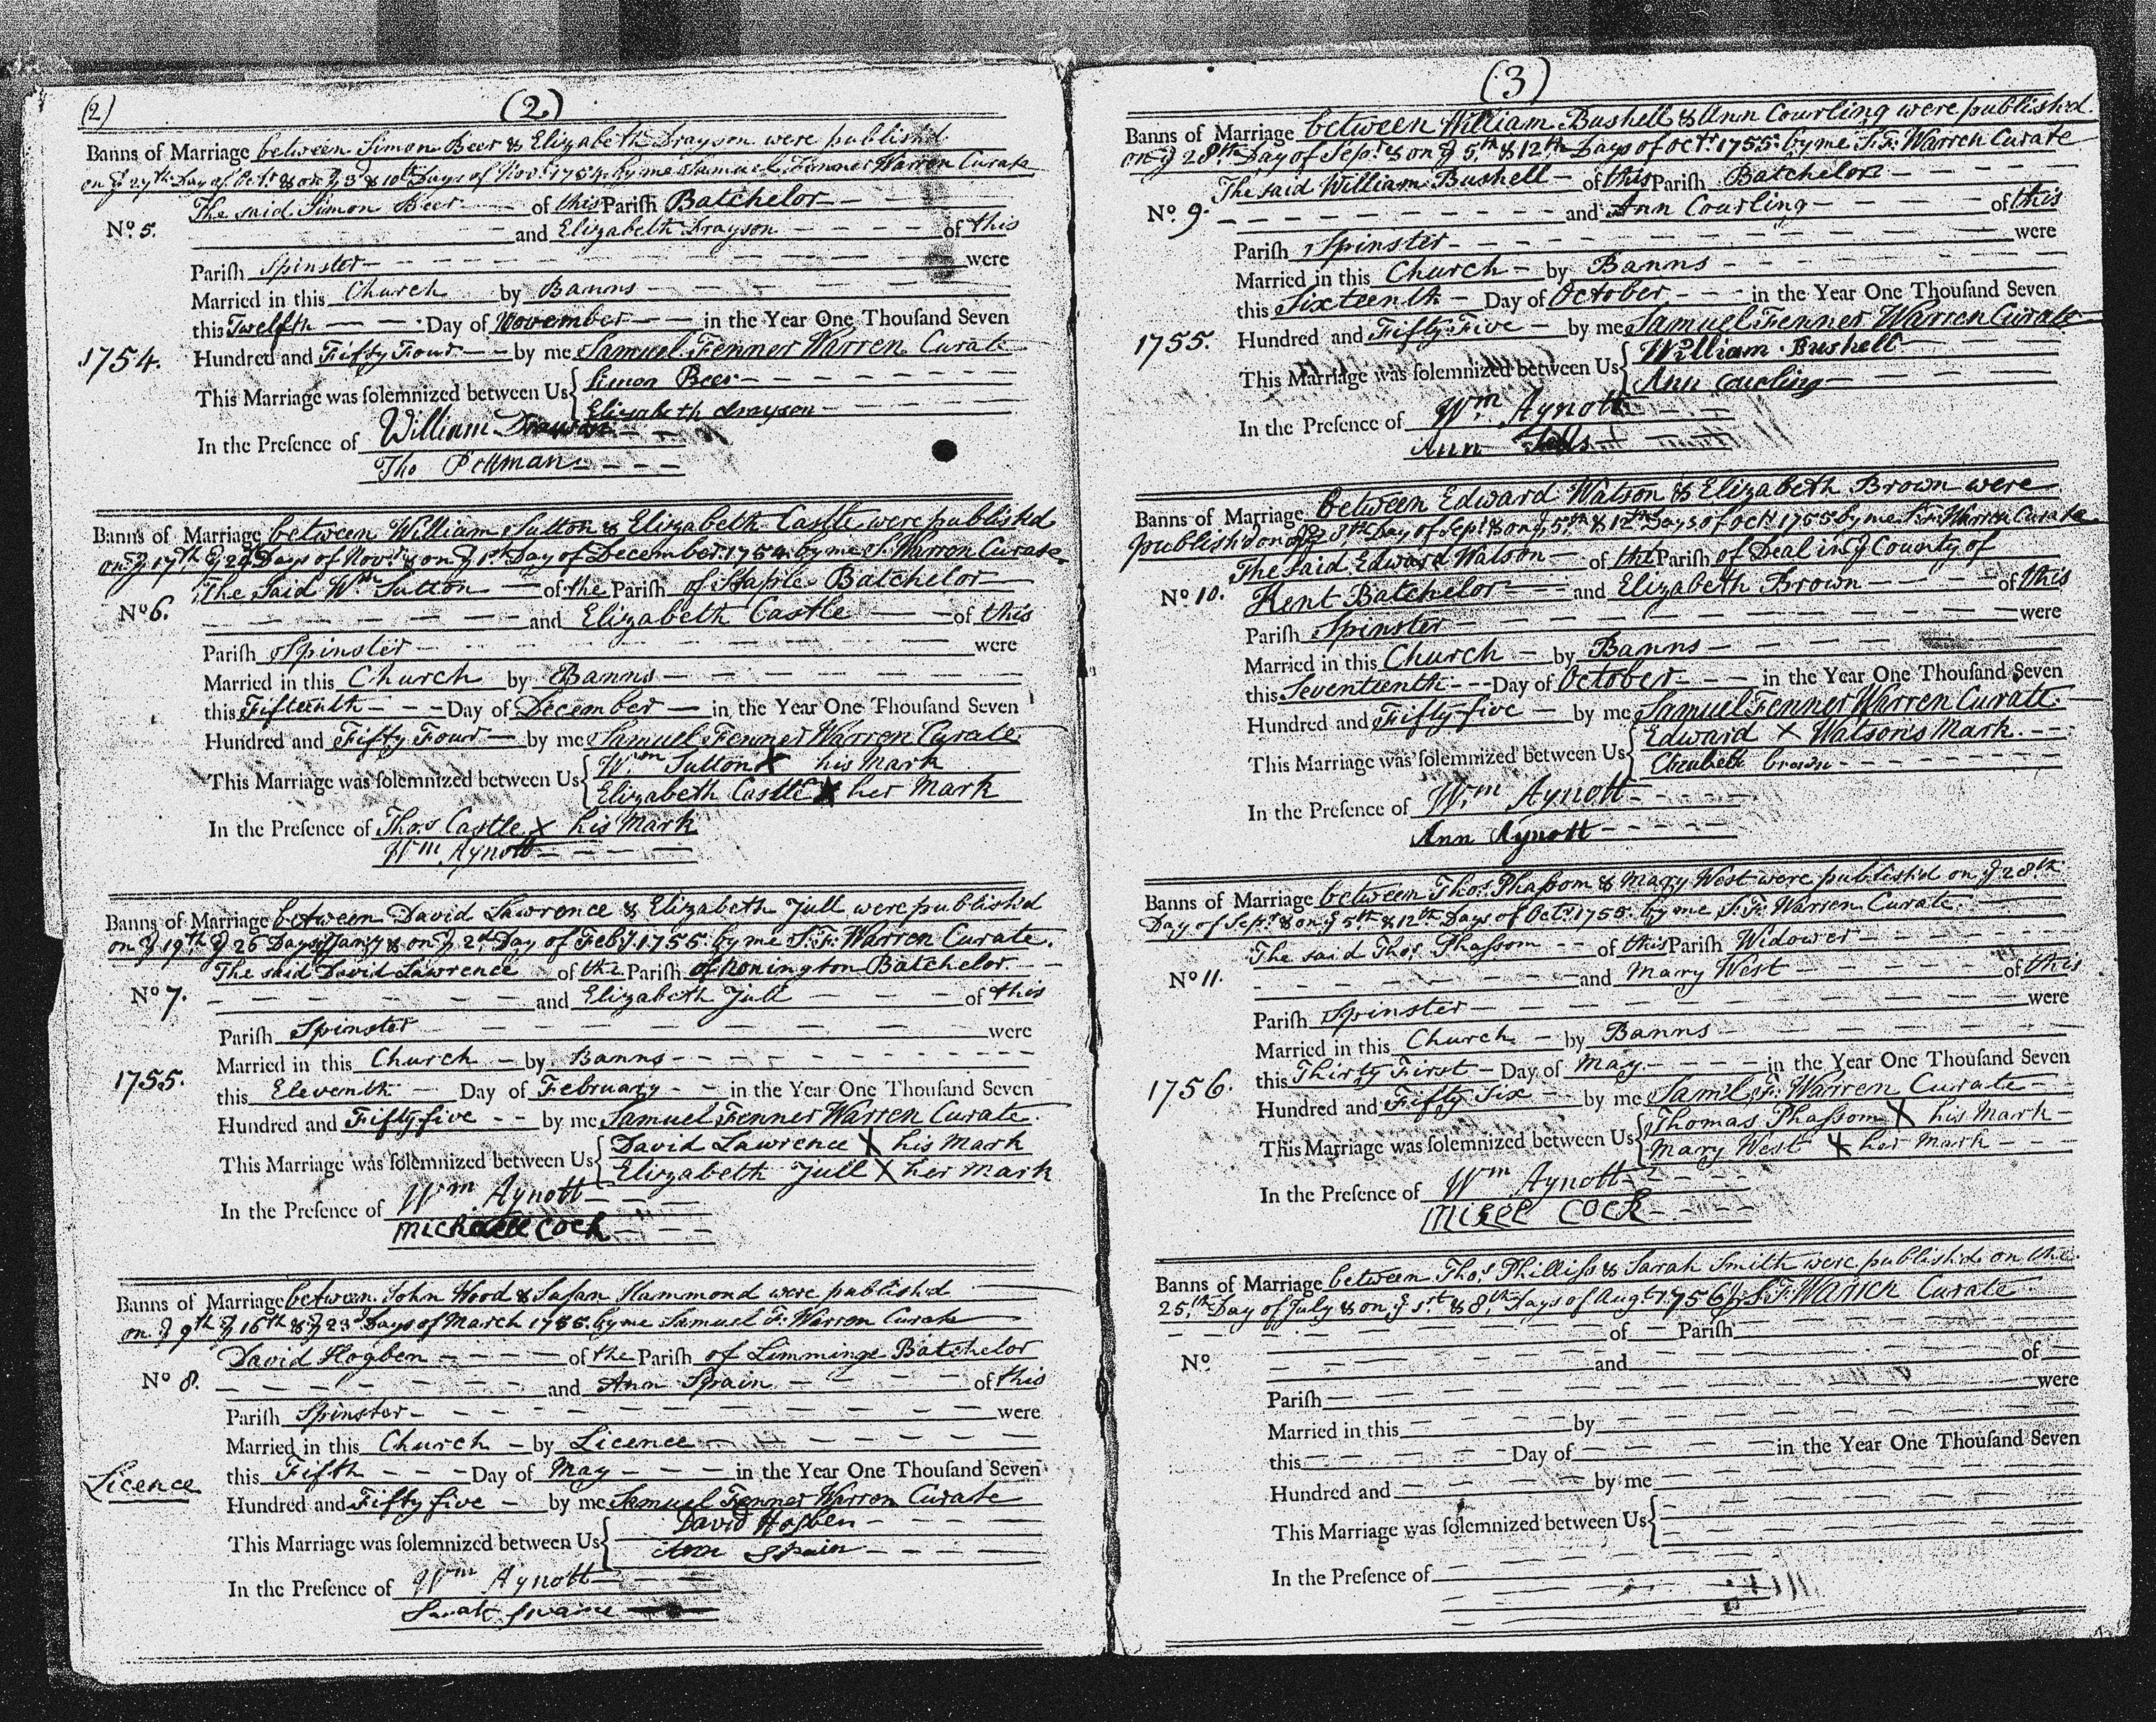 (2)
(2)
Banns of Marriage between Simon Beer & Elizabeth Drayson were publish'd
on ye 27th Day of Octr & on ye 3 & 10th Days of Novr 1754 by me Samuel Fenner Warren Curate
The said Simon Beer of this Parish Batchelor
No 5. and Elizabeth Drayson of this
Pariſh Spinster were
Married in this Church by Banns
this Twelfth Day of November in the Year One Thouſand Seven
1754. Hundred and Fifty Four by me Samuel Fenner Warren Curate
This Marriage was ſolemnized between Us { Simon Beer
Elizabeth drayson
In the Preſence of William
Tho Pettman
Banns of Marriage between William Sutton & Elizabeth Castle were publish'd
on ye 17th & 24 Days of Novr & on ye 1st Day of December 1754 by me S. Warren Curate.
The Said Wm Sutton of the Pariſh of Staple Batchelor
No 6. and Elizabeth Castle of this
Pariſh Spinster were
Married in this Church by Banns
this Fifteenth Day of December in the Year One Thouſand Seven
Hundred and Fifty Four by me Samuel Fenner Warren Curate
This Marriage was ſolemnized between Us { Wm Sutton X his Mark
Elizabeth Castle X her Mark
In the Preſence of Thos Castle X his Mark
Wm Aynott
Banns of Marriage between David Lawrence & Elizabeth Jull were publish'd
on ye 19th ye 26 Days of Jany & on ye 2d Day of Feby 1755 by me S. F. Warren Curate.
The said David Lawrence of the Pariſh of Nonington Batchelor.
No 7. and Elizabeth Jull of this
Pariſh Spinster were
Married in this Church by Banns
1755. this Eleventh Day of February in the Year One Thouſand Seven
Hundred and Fifty five by me Samuel Fenner Warren Curate.
This Marriage was ſolemnized between Us { David Lawrence X his Mark
Elizabeth Jull X her Mark
In the Preſence of Wm Aynott
Cock
Banns of Marriage between John Wood & Susan Hammond were publish'd
on ye 9th ye 16th & ye 23d Days of March 1755 by me Samuel F. Warren Curate
David Hogben of the Pariſh of Limminge Batchelor
No 8. and Ann Spain of this
Pariſh Spinster were
Married in this Church by Licence
Licence this Fifth Day of May in the Year One Thouſand Seven
Hundred and Fifty five by me Samuel Fenner Warren Curate
This Marriage was ſolemnized between Us { David Hogben
Ann Spain
In the Preſence of Wm Aynott
Sarah
(3)
Banns of Marriage between William Bushell & Ann Courling were publish'd
on ye 28th Day of Sepr & on ye 5th & 12th Days of Octr 1755 by me S. F. Warren Curate
The said William Bushell of this Pariſh Batchelor
No 9. and Ann Courling of this
Pariſh Spinster were
Married in this Church by Banns
this Sixteenth Day of October in the Year One Thouſand Seven
1755. Hundred and Fifty Five by me Samuel Fenner Warren Curate
This Marriage was ſolemnized between Us { William Bushell
Ann Courling
In the Preſence of Wm Aynott
Ann
Banns of Marriage between Edward Watson & Elizabeth Brown were
publish'd on ye 28th Day of Sepr & on ye 5th & 12th Days of Octr 1755 by me S. F. Warren Curate
The said Edward Watson of the Pariſh of Deal in ye County of
No 10. Kent Batchelor and Elizabeth Brown of this
Pariſh Spinster were
Married in this Church by Banns
this Seventeenth Day of October in the Year One Thouſand Seven
Hundred and Fifty five by me Samuel Fenner Warren Curate
This Marriage was ſolemnized between Us { Edward X Watson's Mark.
Elizabeth brown
In the Preſence of Wm Aynott
Ann Aynott
Banns of Marriage between Thos Phaſsom & Mary West were publish'd on ye 28th
Day of Sepr & on ye 5th & 12th Days of Octr 1755 by me S. F. Warren Curate.
The said Thos Phaſsom of this Pariſh Widower
No 11. and Mary West of this
Pariſh Spinster were
Married in this Church by Banns
this Thirty First Day of May in the Year One Thouſand Seven
1756. Hundred and Fifty Six by me Saml F. Warren Curate
This Marriage was ſolemnized between Us { Thomas Phaſsom X his Mark
Mary West X her Mark
In the Preſence of Wm Aynott
Micel Cock
Banns of Marriage between Thos Philliſs & Sarah Smith were publish'd on the
25th Day of July & on ye 1st & 8th Days of Augt 1756 by S. F. Warren Curate
of Pariſh
No and of
Pariſh were
Married in this by
this Day of in the Year One Thouſand Seven
Hundred and by me
This Marriage was ſolemnized between Us {
In the Preſence of